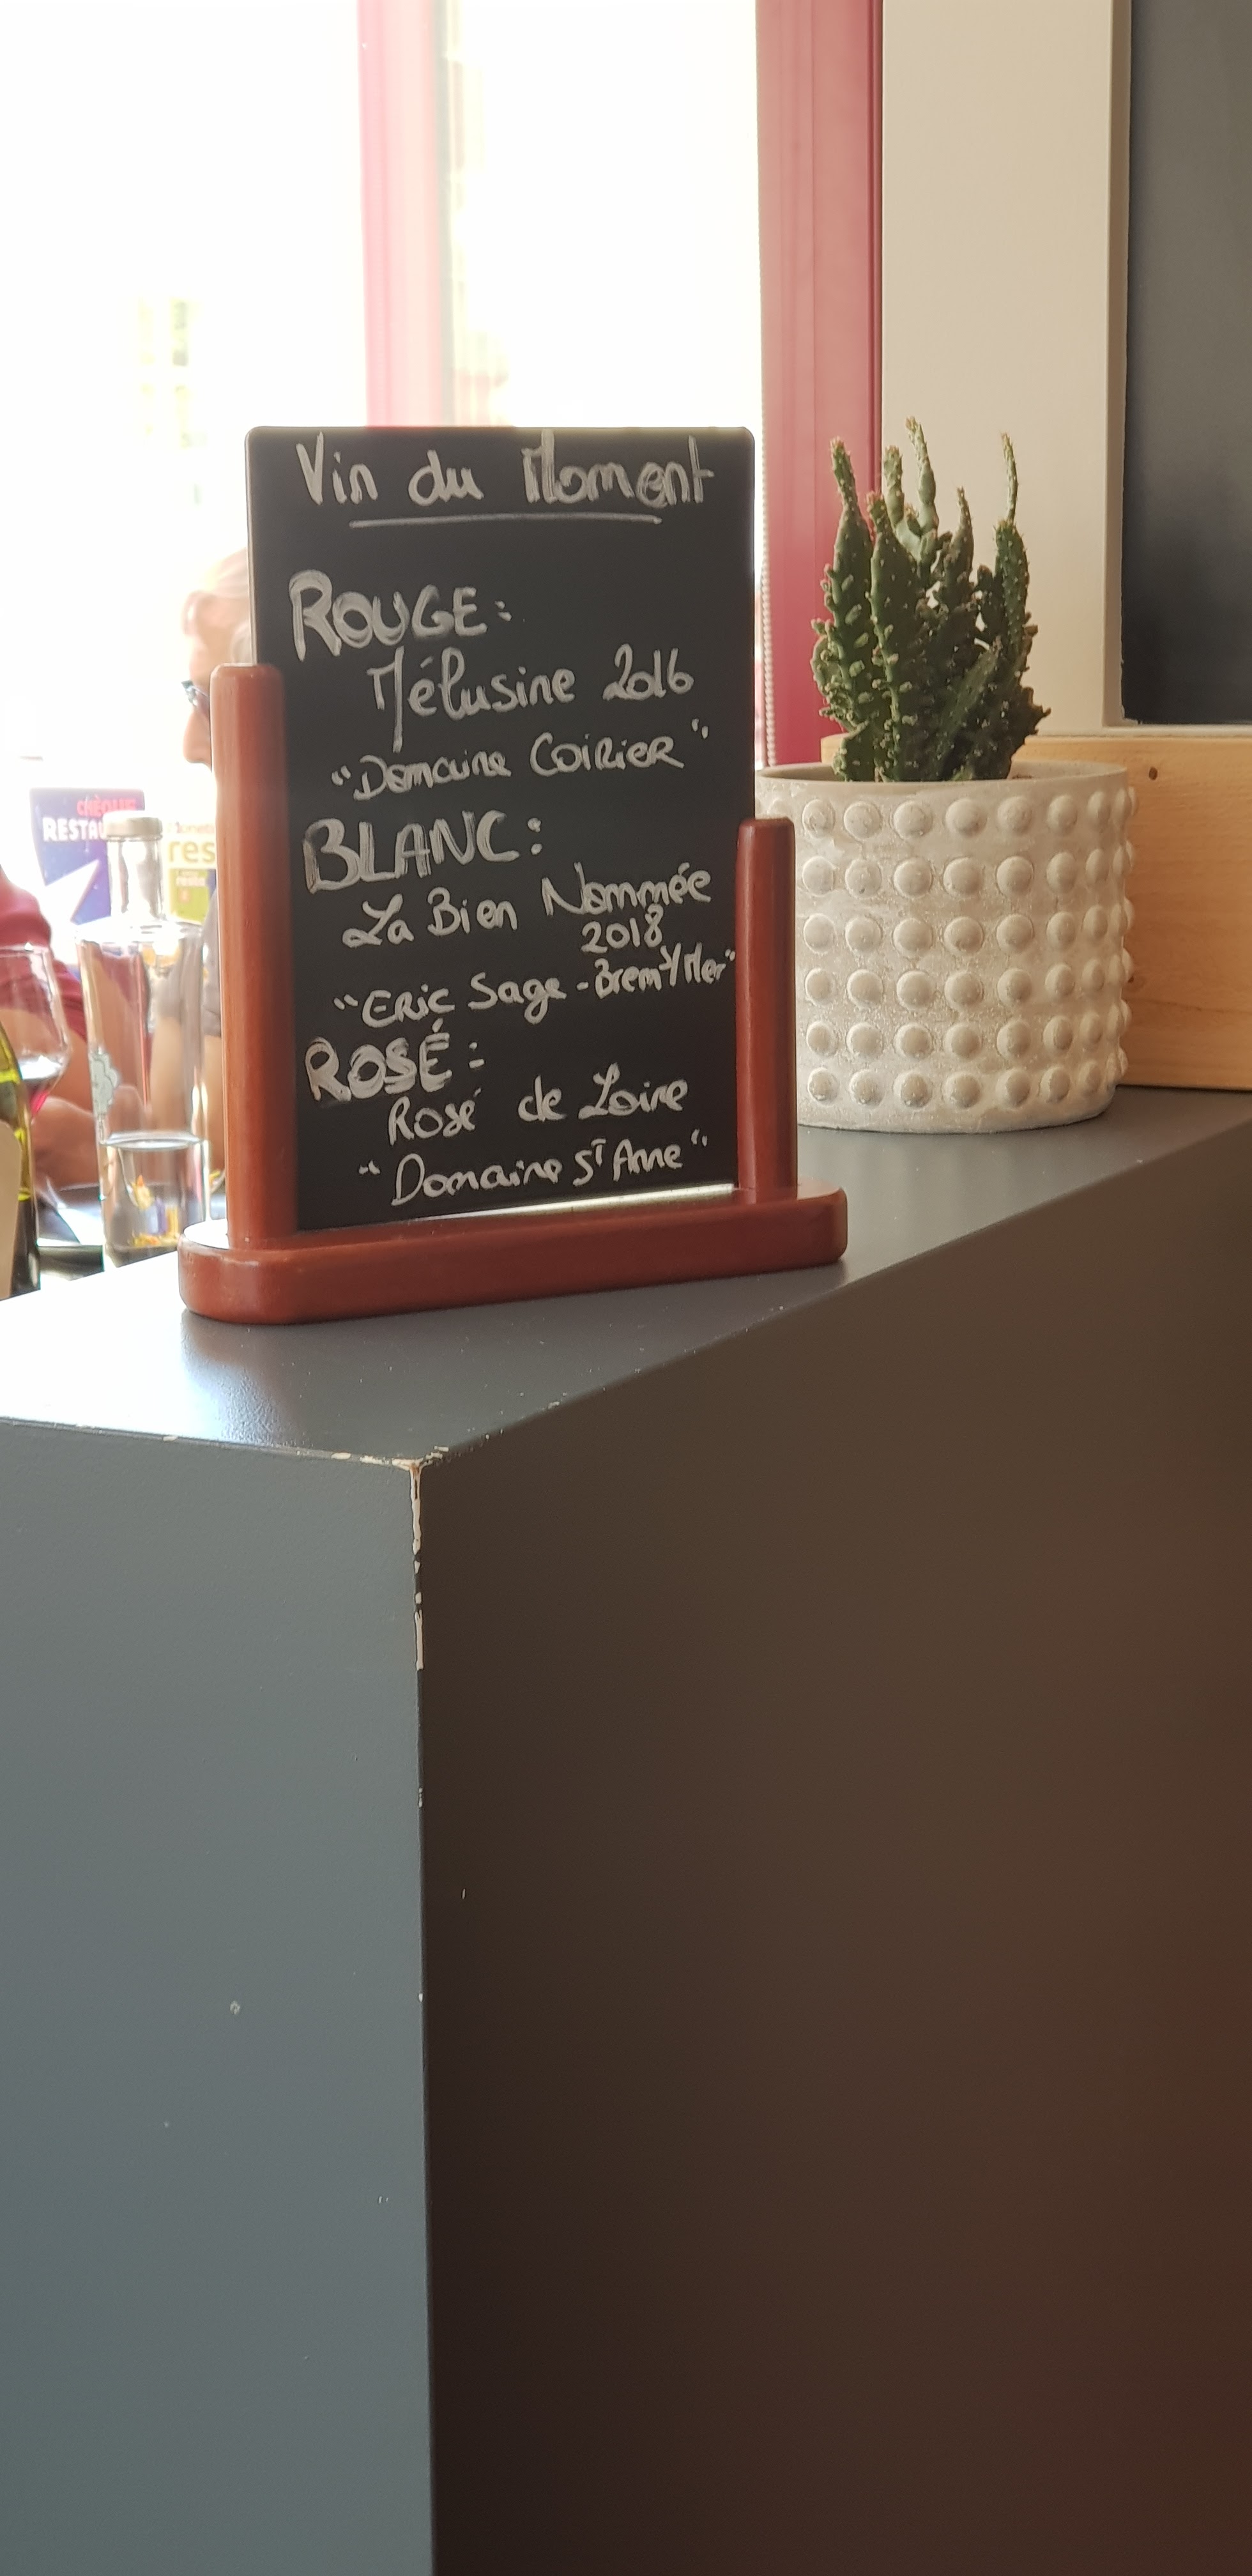 Vin du Moment
ROUGE:
Mélusine 2016
"Domaine COIRIER"
BLANC:
La Bien Nommée
2018
"ERIC Sage - Brem s/ Mer"
ROSÉ:
Rosé de Loire
"Domaine St Anne"
CHÈQUE
RESTAU
res